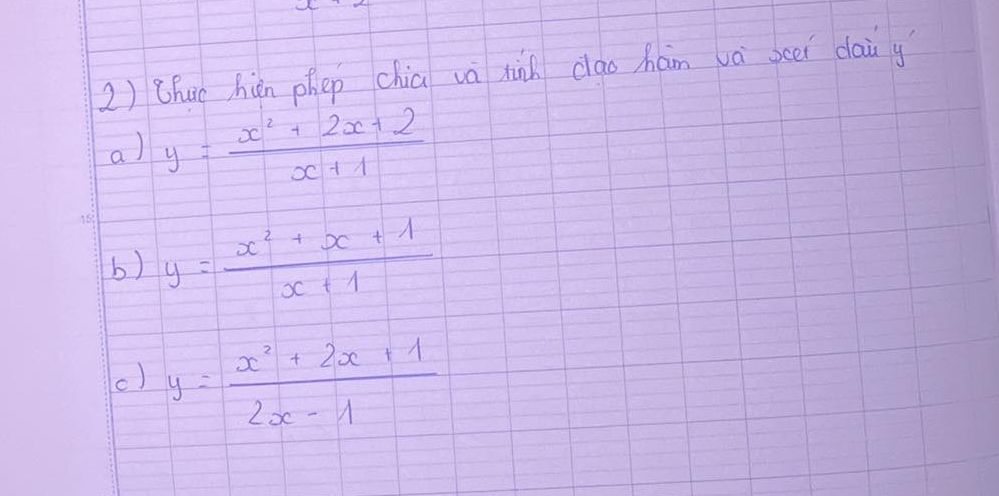 2) Thực hiện phép chia và tính đạo hàm và xét dấu y'
a) y = \frac{x² + 2x + 2}{x + 1}
15
b) y = \frac{x² + x + 1}{x + 1}
c) y = \frac{x² + 2x + 1}{2x - 1}